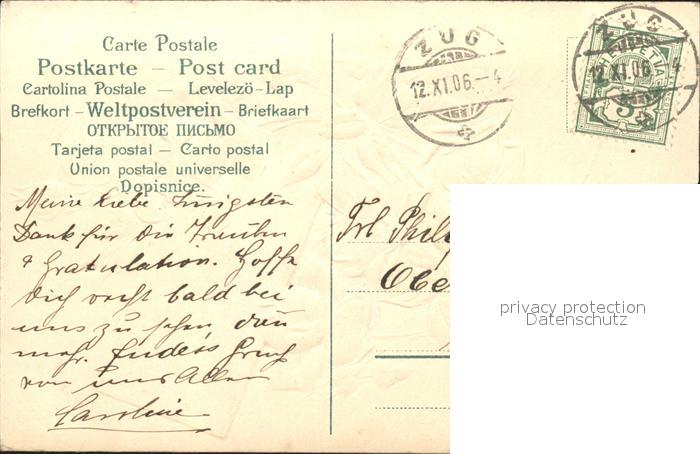 Carte Postale
Postkarte – Post card
Cartolina Postale – Levelező-Lap
Brefkort – Weltpostverein – Briefkaart
ОТКРЫТОЕ ПИСЬМО
Tarjeta postal – Carto postal
Union postale universelle
Dopisnice.
Meine Liebe. Innigsten
Dank für die Trauben
& Gratulation. Hoffe
Dich recht bald bei
uns zu sehen, dann
mehr. Gruß
von uns Allen
Caroline
ZUG
12.XI.06.–4
ZUG
12.XI.06.–4
HELVETIA
5
Frl Phil
Obe
privacy protection
Datenschutz